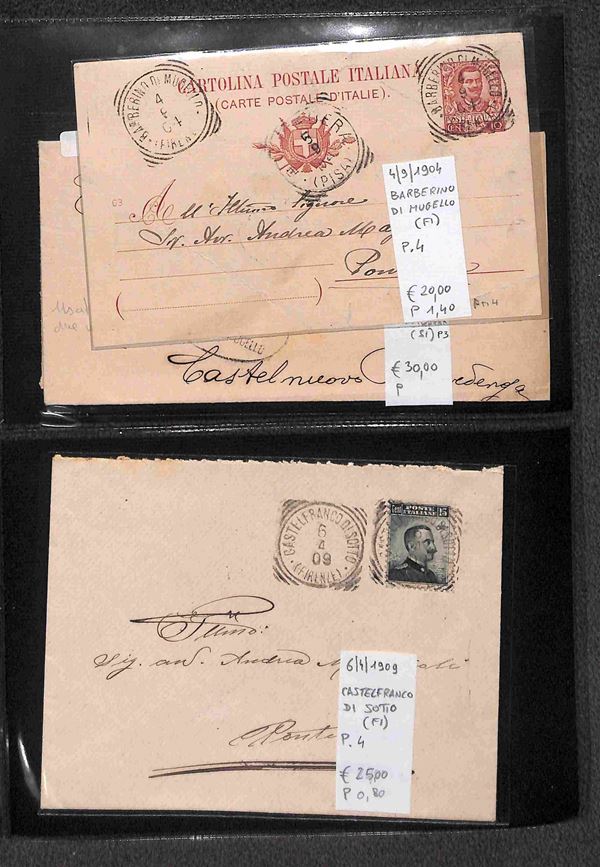 CARTOLINA POSTALE ITALIANA
(CARTE POSTALE D'ITALIE).
BARBERINO DI MUGELLO
4
9
04
(FIRENZE)
BARBERINO DI MUGELLO
10
5
9
(PISA)
63
All'Illmo Signore
Sig. Avv. Andrea
(
)
4/9/1904
BARBERINO
DI MUGELLO
(FI)
P.4
€ 20,00
P 1,40
(SI) P3
€ 30,00
P
due
Castelnuovo
CASTELFRANCO DI SOTTO
6
4
09
(FIRENZE)
Cent POSTE ITALIANE 15
Illmo:
Sig. avv. Andrea
Ponte
6/4/1909
CASTELFRANCO
DI SOTTO
(FI)
P. 4
€ 25,00
P 0,80